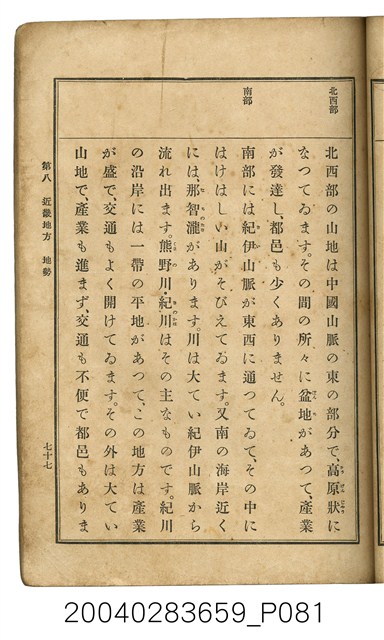 北西部
南部
北西部の山地は中國山脈の東の部分で、高原狀に
なつてゐます。その間の所々に盆地があつて、產業
が發達し、都邑も少くありません。
南部には紀伊山脈が東西に通つてゐて、その中に
はけはしい山がそびえてゐます。又南の海岸近く
には、那智瀧があります。川は大てい紀伊山脈から
流れ出ます。熊野川・紀川はその主なものです。紀川
の沿岸には一帶の平地があつて、この地方は產業
が盛で、交通もよく開けてゐます。その外は大てい
山地で、產業も進まず、交通も不便で都邑もありま
第八 近畿地方 地勢
七十七
20040283659_P081